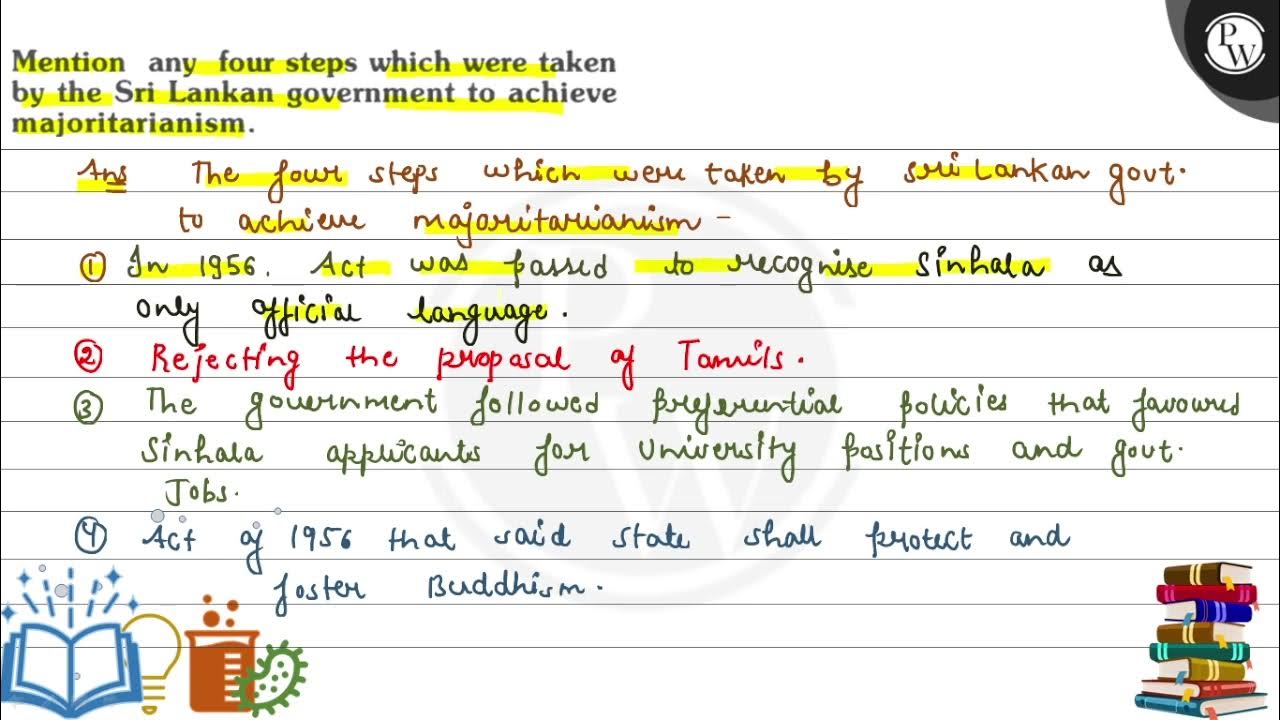 Mention any four steps which were taken
by the Sri Lankan government to achieve
majoritarianism.
PW
Ans The four steps which were taken by Sri Lankan govt.
to achieve majoritarianism -
① In 1956. Act was passed to recognise Sinhala as
only official language.
② Rejecting the proposal of Tamils.
③ The government followed preferential policies that favoured
Sinhala applicants for University positions and govt.
Jobs.
④ Act of 1956 that said state shall protect and
foster Buddhism.